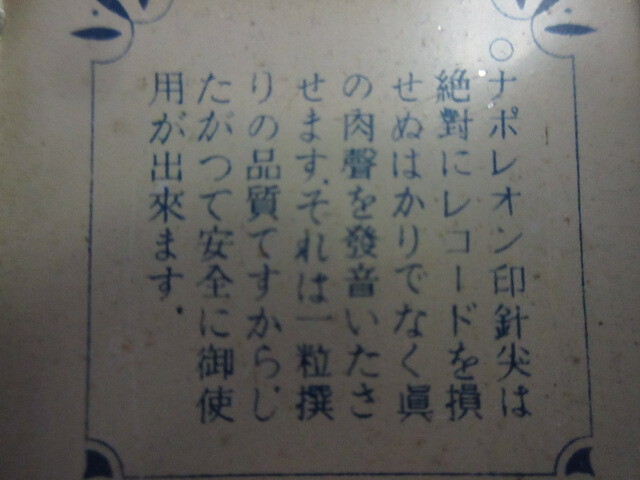 ○ナポレオン印針尖は
絶對にレコードを損
せぬはかりでなく眞
の肉聲を發音いたさ
せます.それは一粒撰
りの品質てすから,し
たがつて安全に御使
用が出來ます.